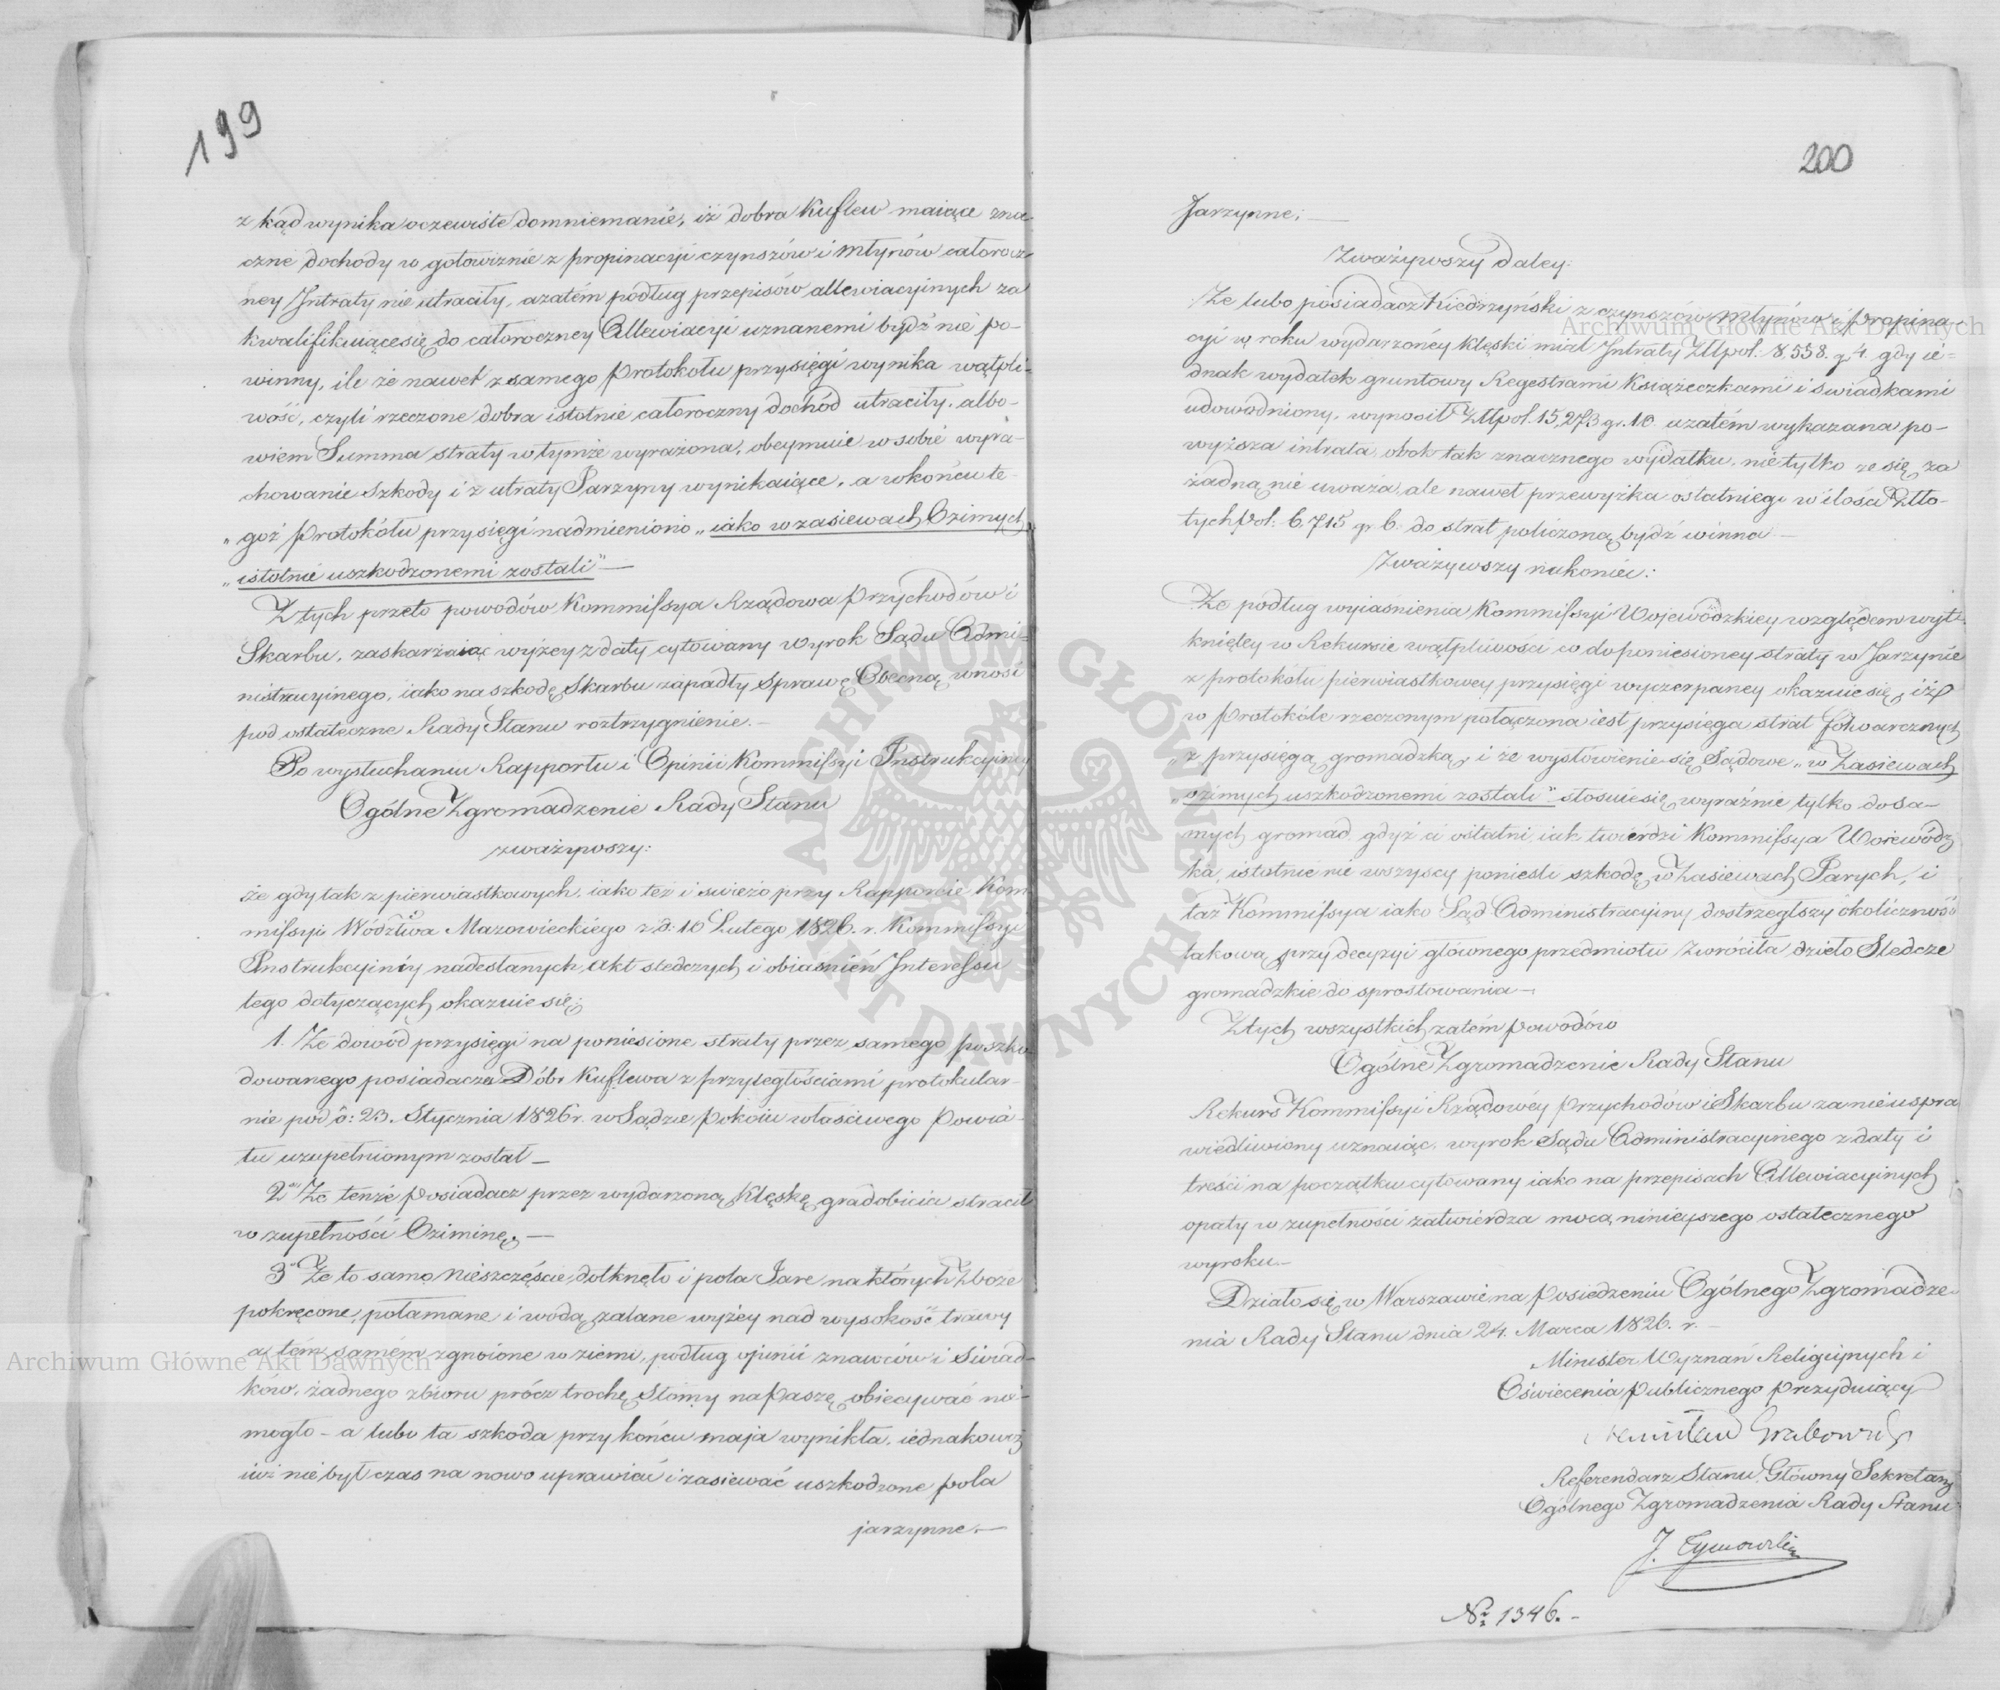 199
z kąd wynika oczewiste domniemanie, iż dobra Kuflew maiące zna-
czne dochody w gotowiznie z propinacyi czynszów i Młynów całorocz-
ney Intraty nie utraciły, a zatém podług przepisów allewiacyinych za
kwalifikuiące się do całoroczney Allewiacyi uznanemi bydź nie po-
winny, ile że nawet z samego Protokołu przysięgi wynika wątpli-
wość, czyli rzeczone dobra istotnie całoroczny dochód utraciły, albo-
wiem Summa straty w tymże wyrażona, obeymuie w sobie wyra-
chowanie szkody i z utraty Jarzyny wynikaiące, a w końcu te-
„goż Protokółu przysięgi nadmieniono „iako w zasiewach Ozimych
„istotnie uszkodzonemi zostali" —
Z tych przeto powodów Kommissya Rządowa Przychodów i
Skarbu, zaskarżaiąc wyżey z daty cytowany wyrok Sądu Admi-
nistracyinego, iako na szkodę Skarbu zapadły Sprawę Obecną wnosi
pod ostateczne Rady Stanu roztrzygnienie. —
Po wysłuchaniu Rapportu i Opinii Kommissyi Instrukcyiney
Ogólne Zgromadzenie Rady Stanu
zważywszy:
że gdy tak z pierwiastkowych, iako też i swieżo przy Rapporcie Kom
missyi Wództwa Mazowieckiego z d: 10 Lutego 1826. r. Kommissyi
Instrukcyiney nadesłanych, akt sledczych i obiasnień Interessu
tego dotyczących okazuie się;
1. Ze dowód przysięgi na poniesione straty przez samego poszko-
dowanego posiadacza Dóbr Kuflewa z przyległościami protokular-
nie pod d: 23. Stycznia 1826 r. w Sądzie Pokoiu właściwego Powia-
tu uzupełnionym został —
2. Ze tenże Posiadacz przez wydarzoną Klęskę gradobicia stracił
w zupełności Oziminę, —
3. Ze to samo Nieszczęście dotknęło i pola Jare, na których Zboże
pokręcone, połamane i wodą zalane wyżey nad wysokość trawy
a tém samém zgnoione w ziemi, podług opinii znawców i Swiad-
ków, żadnego zbioru prócz trochę Słomy na Paszę obiecywać nie-
mogło – a lubo ta szkoda przy końcu maja wynikła, iednakowoż
iuż nie był czas na nowo uprawiać i zasiewać uszkodzone pola
jarzynne. —
200
Jarzynne; —
Zważywszy daley:
Ze lubo posiadacz Kiedrzyński z czynszów Młynów i Propina-
cyi w roku wydarzoney klęski miał Intraty Złlpol: 8,558. g 4. gdy ie-
dnak wydatek gruntowy Regestrami Książeczkami i swiadkami
udowodniony, wynosił Złlpol. 15,273 gr. 10. a zatém wykazana po-
wyższa intrata, obok tak znacznego wydatku, nie tylko ze się za
żadną nie uważa, ale nawet przewyżka ostatniego w ilości Zło-
tych Pol: 6,715 gr 6. do strat policzoną bydź winna —
Zważywszy nakoniec:
Ze podług wyiaśnienia Kommissyi Wojewódzkiey względem wyt-
kniętey w Rekursie wątpliwości co do poniesioney straty w Jarzynie
z protokółu pierwiastkowey przysięgi wyczerpaney okazuie się, iż
w Protokóle rzeczonym połączona iest przysięga strat folwarcznych
„z przysięgą gromadzką, i że wysłowienie się Sądowe „w Zasiewach
„ozimych uszkodzonemi zostali" stosuie się wyraźnie tylko do sa-
mych gromad, gdyż ci ostatni, iak twierdzi Kommissya Woiewódz
ka, istotnie nie wszyscy ponieśli szkodę w Zasiewach Jarych, i
taż Kommissya iako Sąd Administracyiny dostrzegłszy okoliczność
takową przy decyzyi głównego przedmiotu zwróciła dzieło Sledcze
gromadzkie do sprostowania —
Z tych wszystkich zatém powodów
Ogólne Zgromadzenie Rady Stanu
Rekurs Kommissyi Rządowéy Przychodów i Skarbu za nieuspra
wiedliwiony uznaiąc, wyrok Sądu Administracyinego z daty i
treści na początku cytowany iako na przepisach Allewiacyinych
oparty w zupełności zatwierdza mocą ninieyszego ostatecznego
wyroku. —
Działo się w Warszawie na Posiedzeniu Ogólnego Zgromadze-
nia Rady Stanu dnia 24. Marca 1826. r. —
Minister Wyznań Religiynych i
Oświecenia Publicznego Prezyduiący
Stanisław Grabowski
Referendarz Stanu, Główny Sekretarz
Ogólnego Zgromadzenia Rady Stanu
J. Tymowski
Nr. 1346. –
Archiwum Główne Akt Dawnych
Archiwum Główne Akt Dawnych
ARCHIWUM GŁÓWNE AKT DAWNYCH